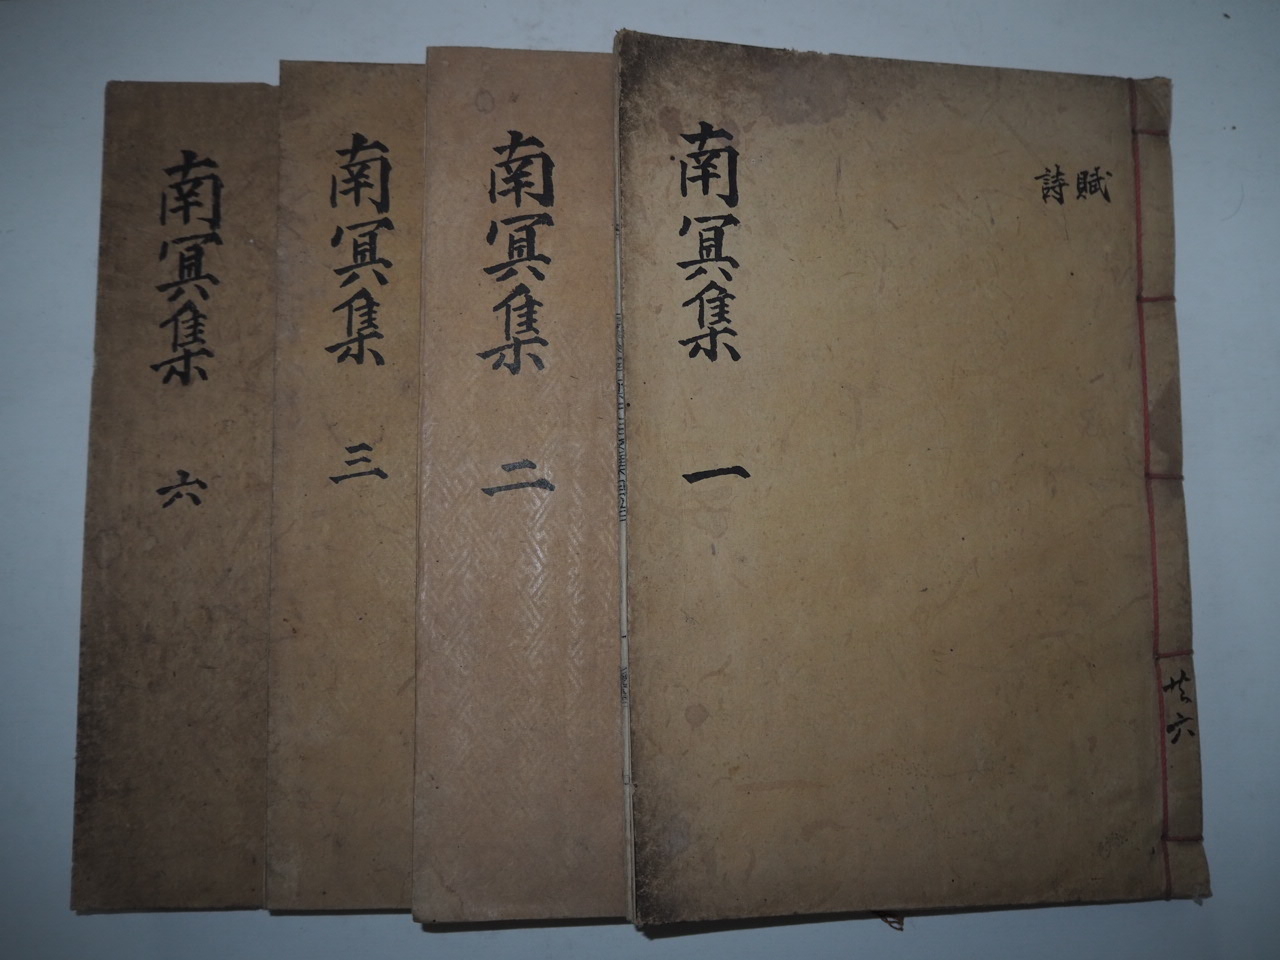 南冥集 一
賦
詩
共六
南冥集 二
南冥集 三
南冥集 六